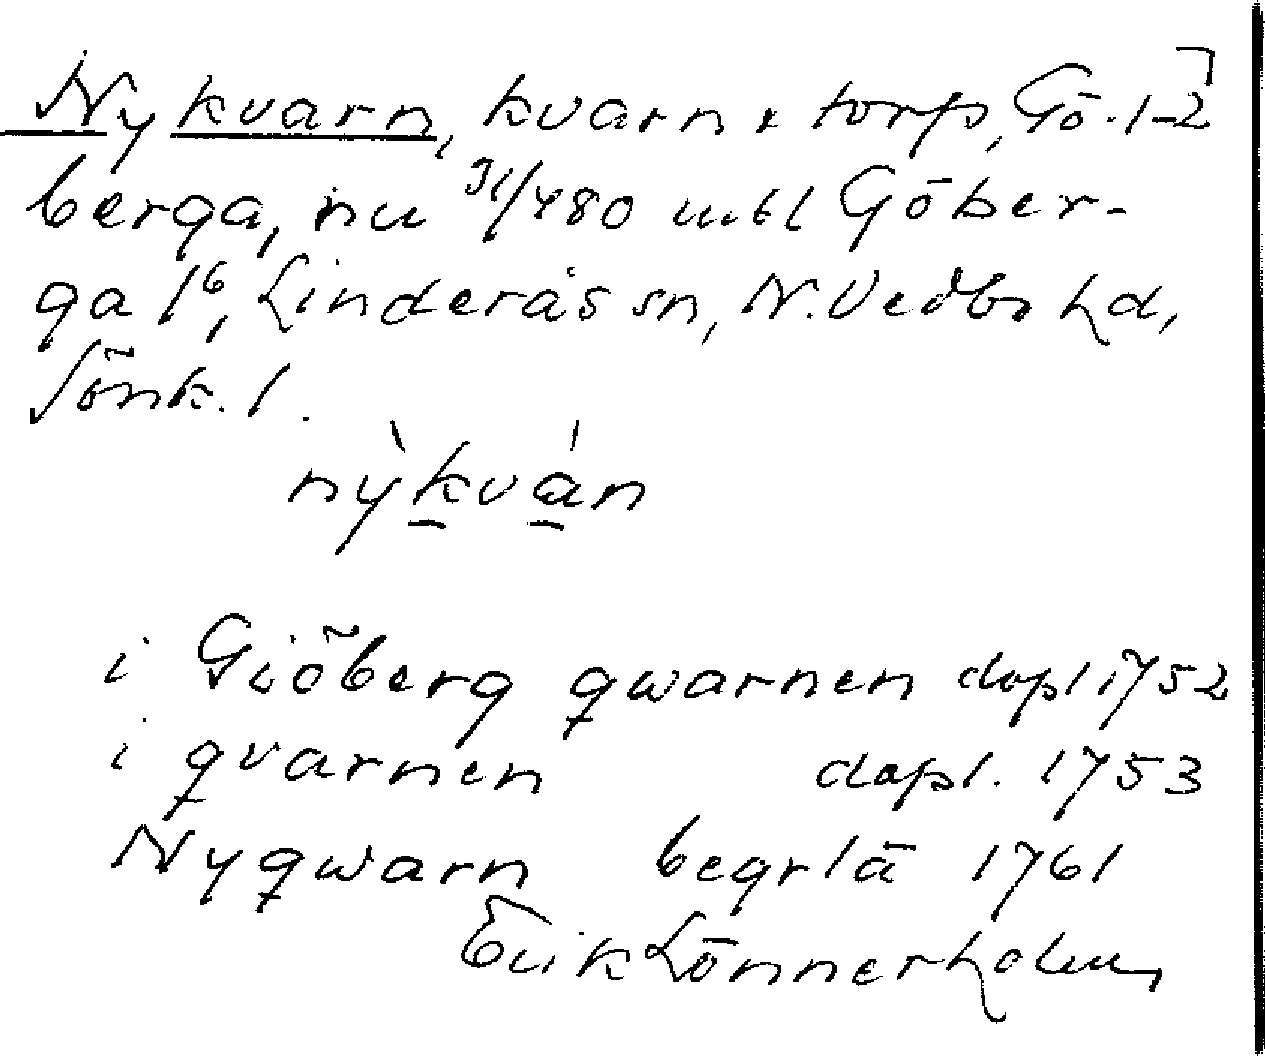 Nykvarn, kvarn x torp, Gö. 1-2
berga, nu 31/480 mtl Göber-
ga 1⁶, Linderås sn, N. Vedbo hd,
Jönk. l.
nỳkván
i Giöberg qwarnen dopl 1752
i qvarnen dopl. 1753
Nyqwarn begrlä 1761
Erik Lönnerholm